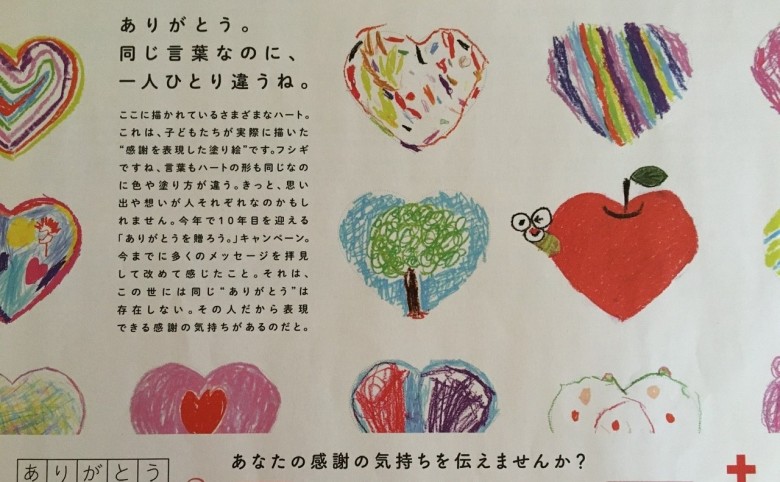 ありがとう。
同じ言葉なのに、
一人ひとり違うね。
ここに描かれているさまざまなハート。
これは、子どもたちが実際に描いた
“感謝を表現した塗り絵”です。フシギ
ですね、言葉もハートの形も同じなの
に色や塗り方が違う。きっと、思い
出や想いが人それぞれなのかもし
れません。今年で10年目を迎える
「ありがとうを贈ろう。」キャンペーン。
今までに多くのメッセージを拝見
して改めて感じたこと。それは、
この世には同じ“ありがとう”は
存在しない。その人だから表現
できる感謝の気持ちがあるのだと。
あなたの感謝の気持ちを伝えませんか？
ありがとう